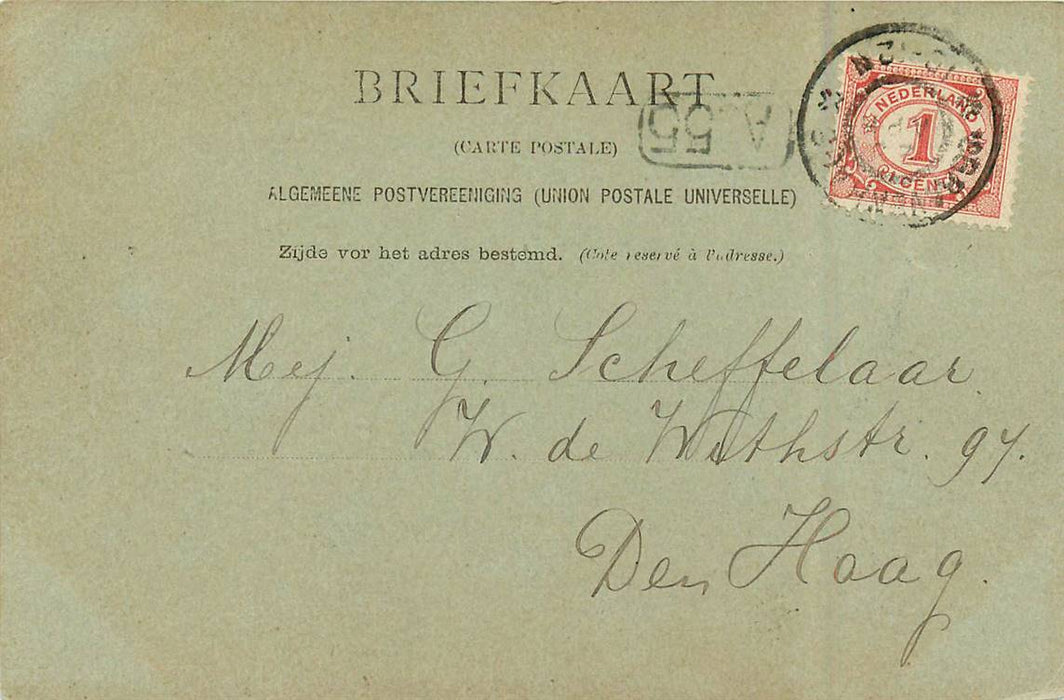 BRIEFKAART
A 55
(CARTE POSTALE)
ALGEMEENE POSTVEREENIGING (UNION POSTALE UNIVERSELLE)
Zijde vor het adres bestemd. (Cote reservé à l'adresse.)
NEDERLAND
1
Mej. G. Scheffelaar
W. de Withstr. 97.
Den Haag.